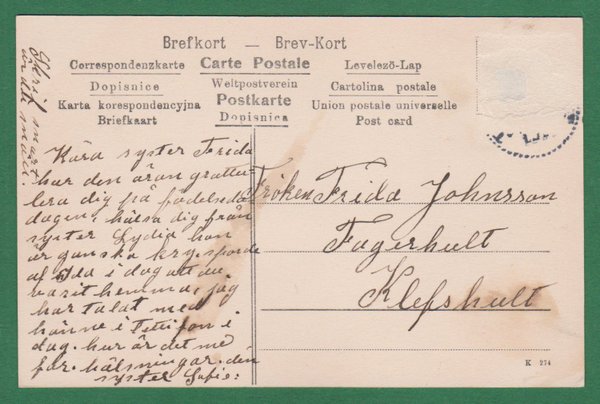 Brefkort — Brev-Kort
Correspondenzkarte Carte Postale Levelező-Lap
Dopisnice Weltpostverein Cartolina postale
Karta korespondencyjna Postkarte Union postale universelle
Briefkaart Dopisnica Post card
Skrif snart
ordet snart
Kära syster Frida
har den äran gratu-
lera dig på födelseda
dagen, hälsa dig från
syster Lydia hon
är ganska kry. sporde
af Ida i dag att du
varit hemma, jag
har talat med
hänne i Tellifon i
dag. hur är det med
far. hälsningar. den
syster Sofie:
Fröken Frida Johnsson
Fagerhult
Klefshult
K 274